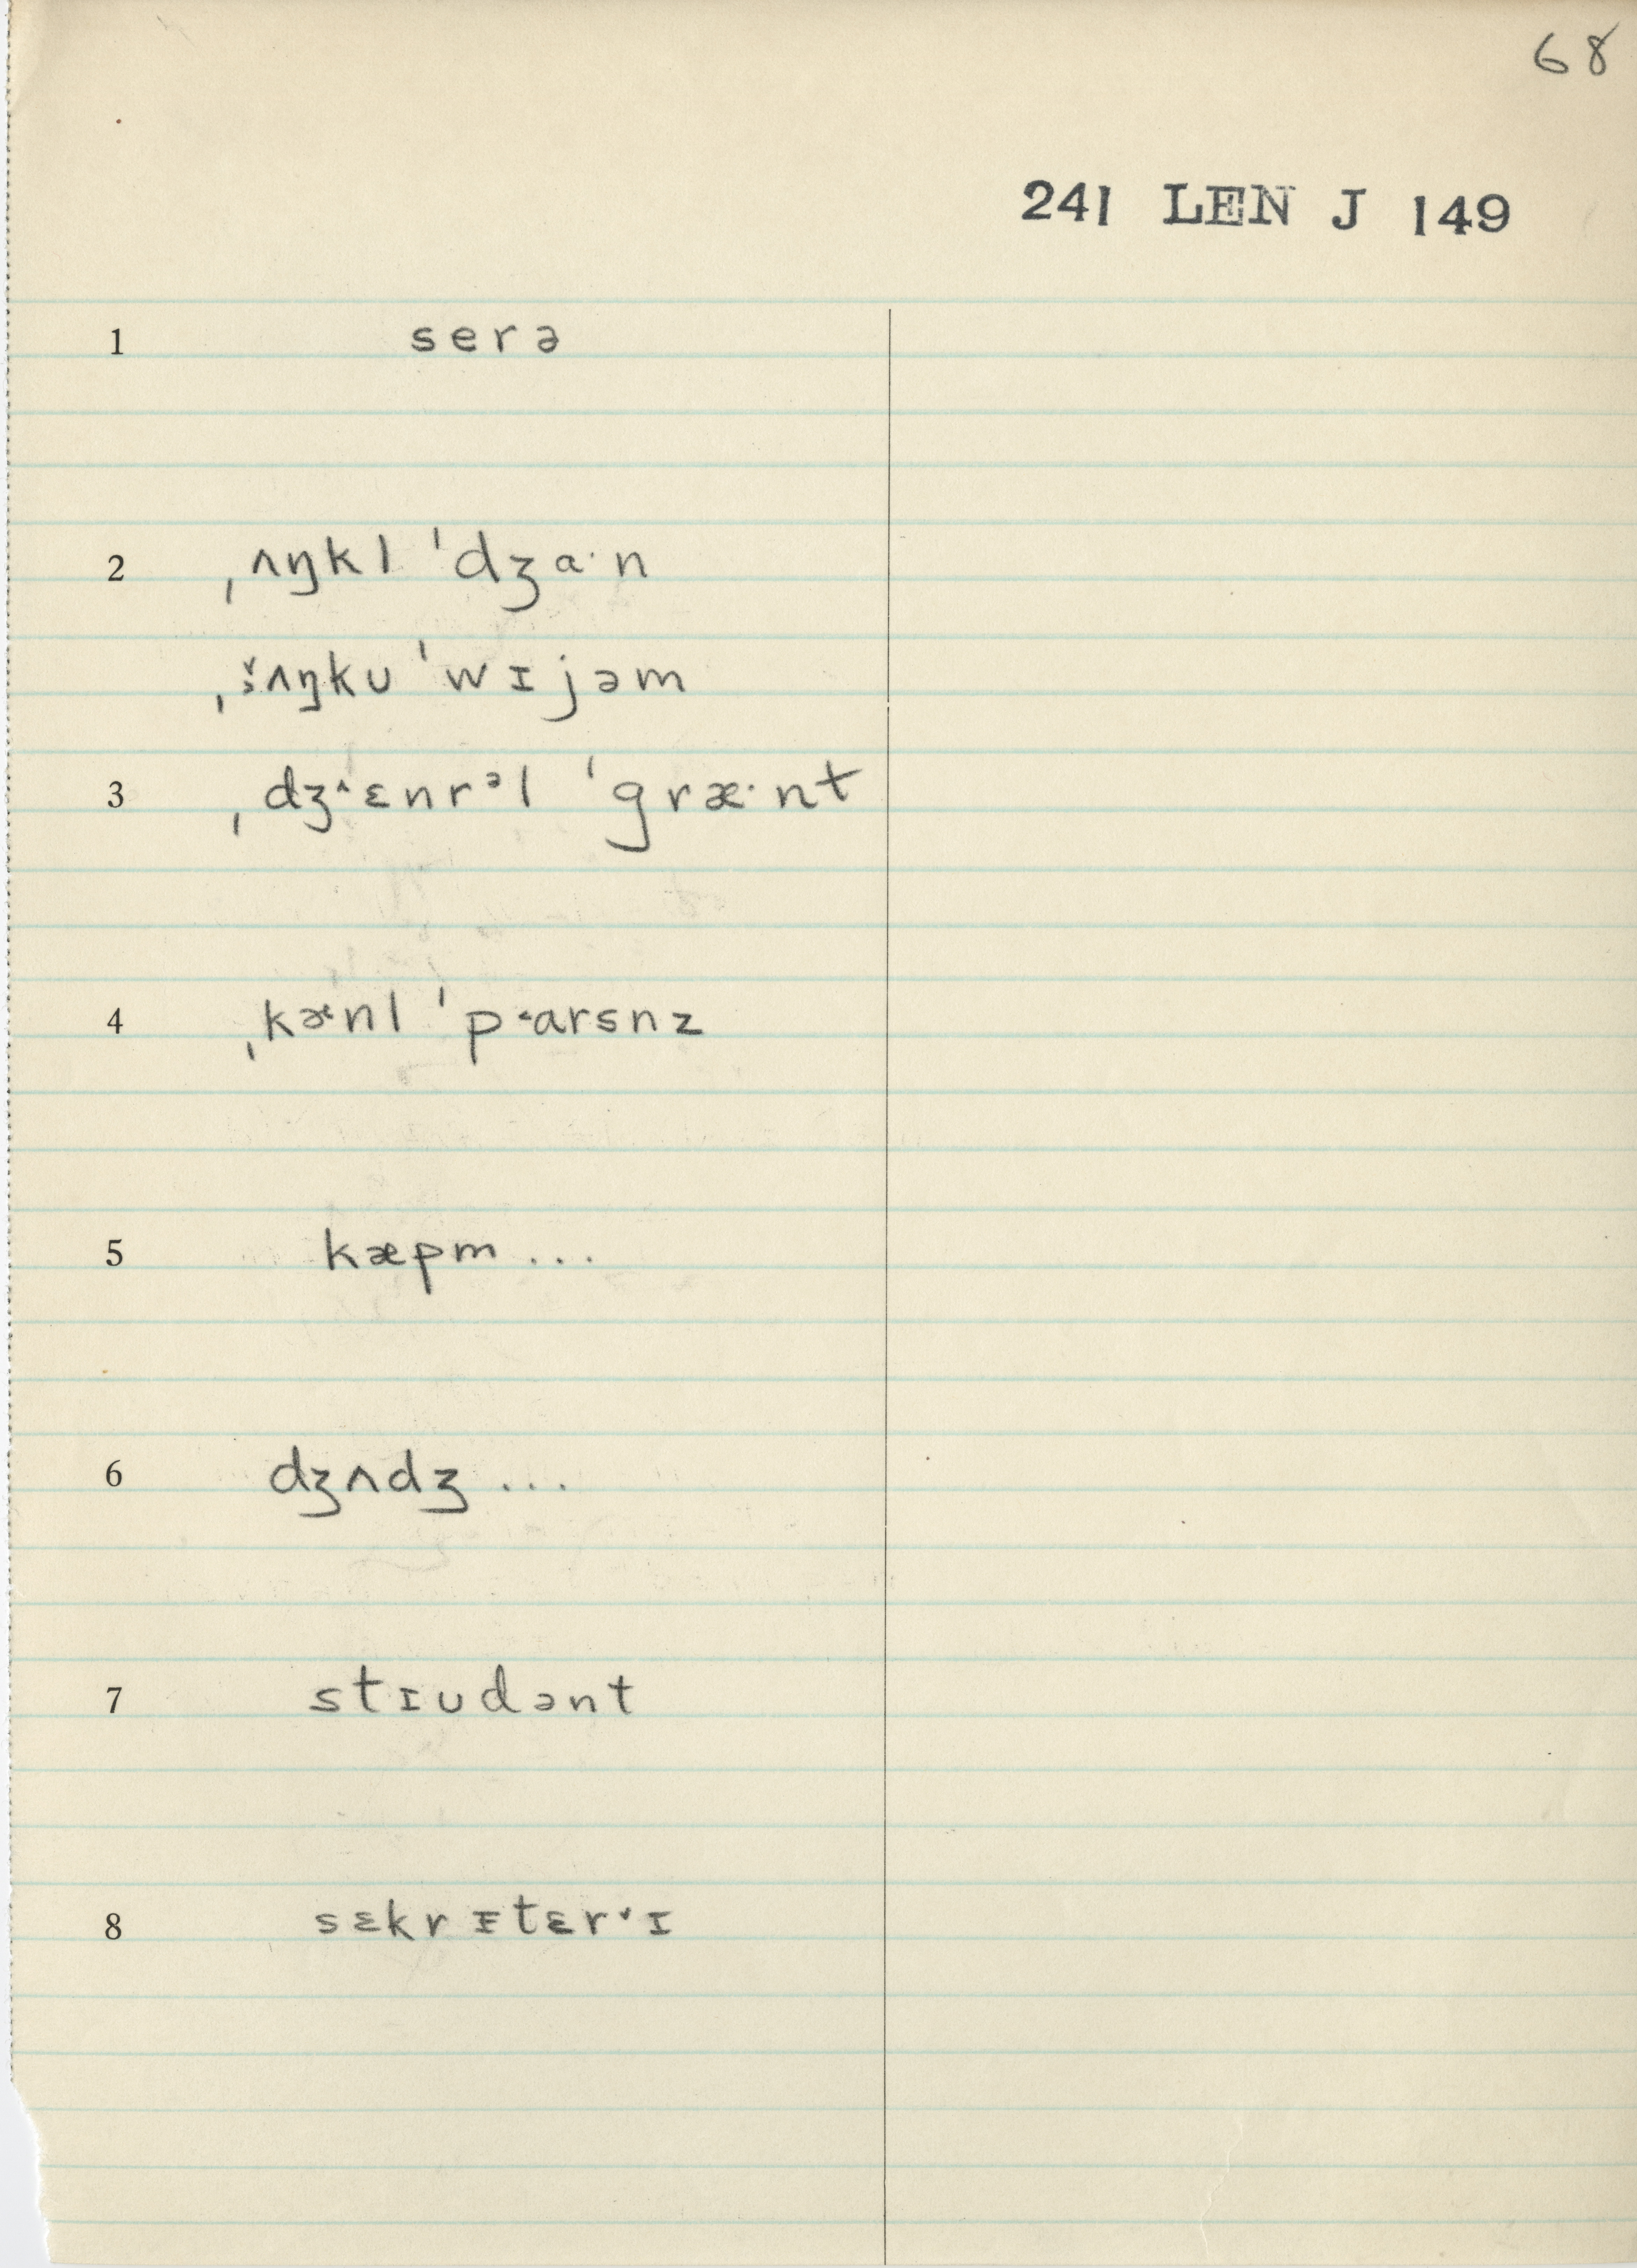 68
241 LEN J 149
1 serə
2 ˌʌŋkl ˈdʒɑ·n
ˌʌŋkʊ ˈwɪjəm
3 ˌdʒ˄ɛnrᵊl ˈgræ·nt
4 ˌkɚnl ˈp˂arsnz
5 kæpm ...
6 dʒʌdʒ ...
7 stɪʊdənt
8 sɛkrɪtɛr˅ɪ